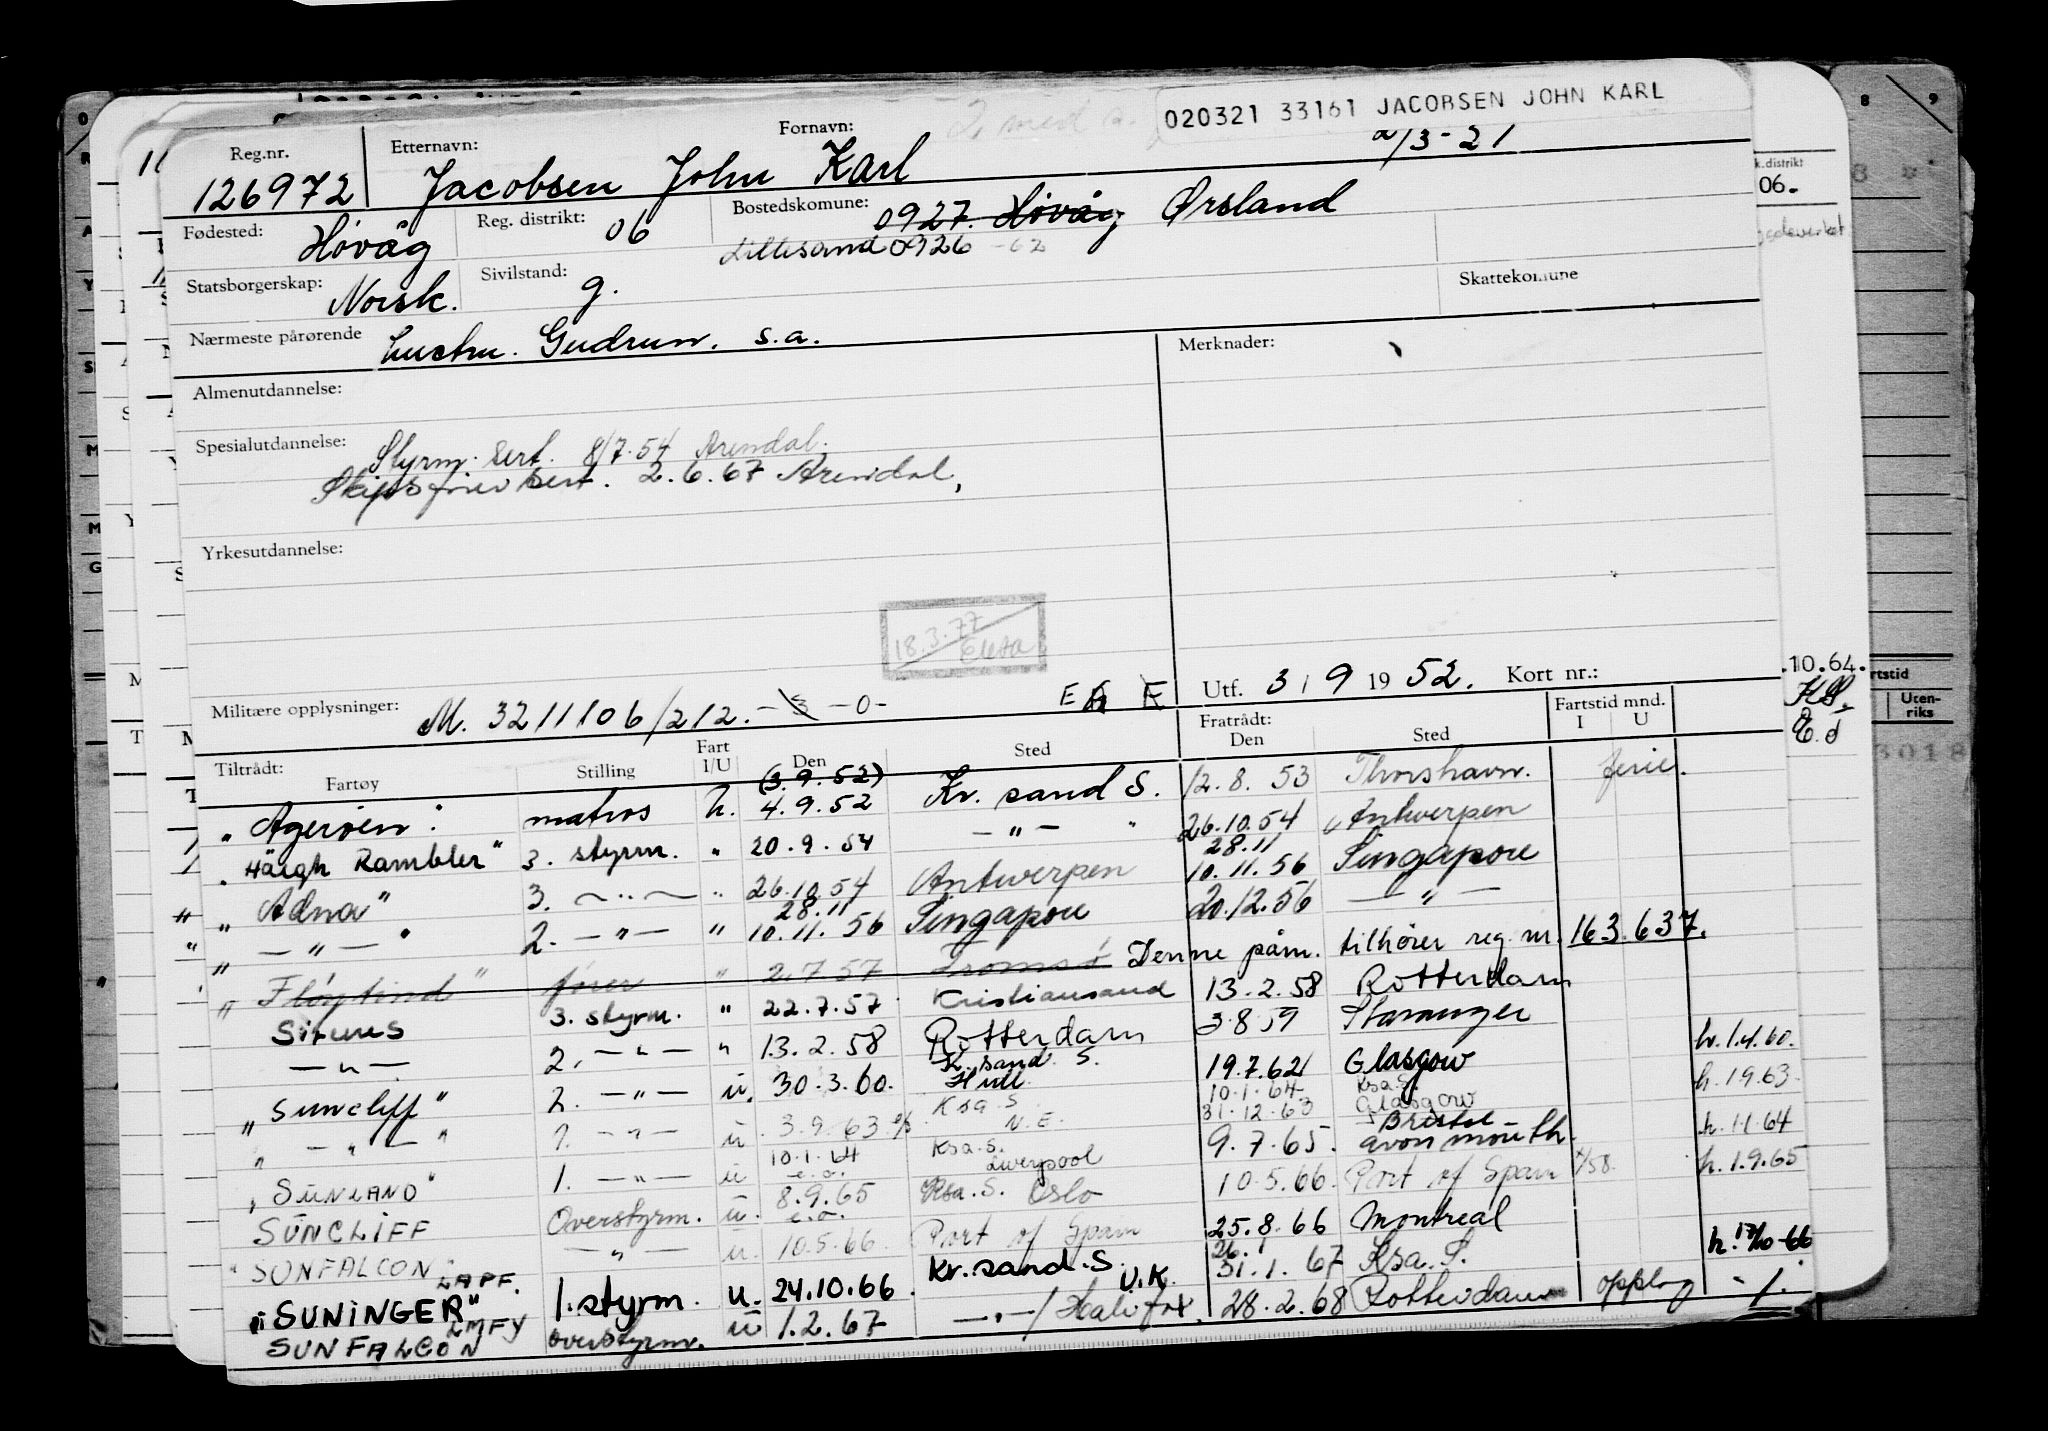 020321 33161 JACOBSEN JOHN KARL
Reg.nr. Etternavn: Fornavn: 2/3-21
126972 Jacobsen John Karl
k.distrikt
06.
Fødested: Høvåg Reg. distrikt: 06 Bostedskomune: 0927. Høvåg Ørsland
Lillesand 0926 -62
Statsborgerskap: Norsk. Sivilstand: g. Skattekomune
Nærmeste pårørende hustru. Gudrun. s.a. Merknader:
Almenutdannelse:
Spesialutdannelse: Styrm. sert. 8/7.54 Arendal.
Skipsfører sert. 2.6.67 Arendal,
Yrkesutdannelse:
18.3.77
Militære opplysninger: M. 3211106/212. - 3 - 0 - Utf. 3/9 1952. Kort nr.:
.10.64.
Tiltrådt: Fratrådt: Fartstid mnd.
Fartøy Stilling Fart I/U Den Sted Den Sted I U
Uten-
riks
3018
(3.9.52)
"Agerøen". matros h. 4.9.52 Kr. sand S. 12.8.53 Thorshavn. ferie.
"Häugh Rambler" 3. styrm. " 20.9.54 - " - " 26.10.54 Antwerpen
28.11
"Adna" 3. - " - " 26.10.54 Antwerpen 10.11.56 Singapore
28.11
" - " - " 2. - " - " 10.11.56 Singapore 20.12.56 - " -
"Fløytind" fører " 2.7.57 Tromsø Denne påm. tilhører reg. nr. 163.637.
Sirius 3. styrm. " 22.7.57 Kristiansand 13.2.58 Rotterdam
- " - 2. - " - " 13.2.58 Rotterdam 3.8.59 Stavanger
K. sand S. h. 1.4.60.
"Suncliff" 2. - " - u. 30.3.60. Hull 19.7.62 Glasgow
Ksa S. 10.1.64 Ksa.S. h. 1.9.63.
" - " - " 1. - " - u. 3.9.63 N.E. 31.12.63 Glasgow
10.1.64 Ksa.S. Bristol h. 1.1.64
"SUNLAND" 1. - " - u Liverpool 9.7.65. avonmouth.
SUNCLIFF Overstyrm. u. 8.9.65 Ksa.S. Oslo 10.5.66. Port of Spain h. 1.9.65
"SUNFALCON" - " - u. 10.5.66. Port of Spain 25.8.66 Montreal
LAPF. 26.1
"SUNINGER" 1.styrm. u. 24.10.66. Kr.sand.S. U.K. 31.1.67 Ksa. S. h. 17/10-66
LMFY
SUNFALCON overstyrm. u 1.2.67 - " - / Halifax. 28.2.68 Rotterdam opplag - / .